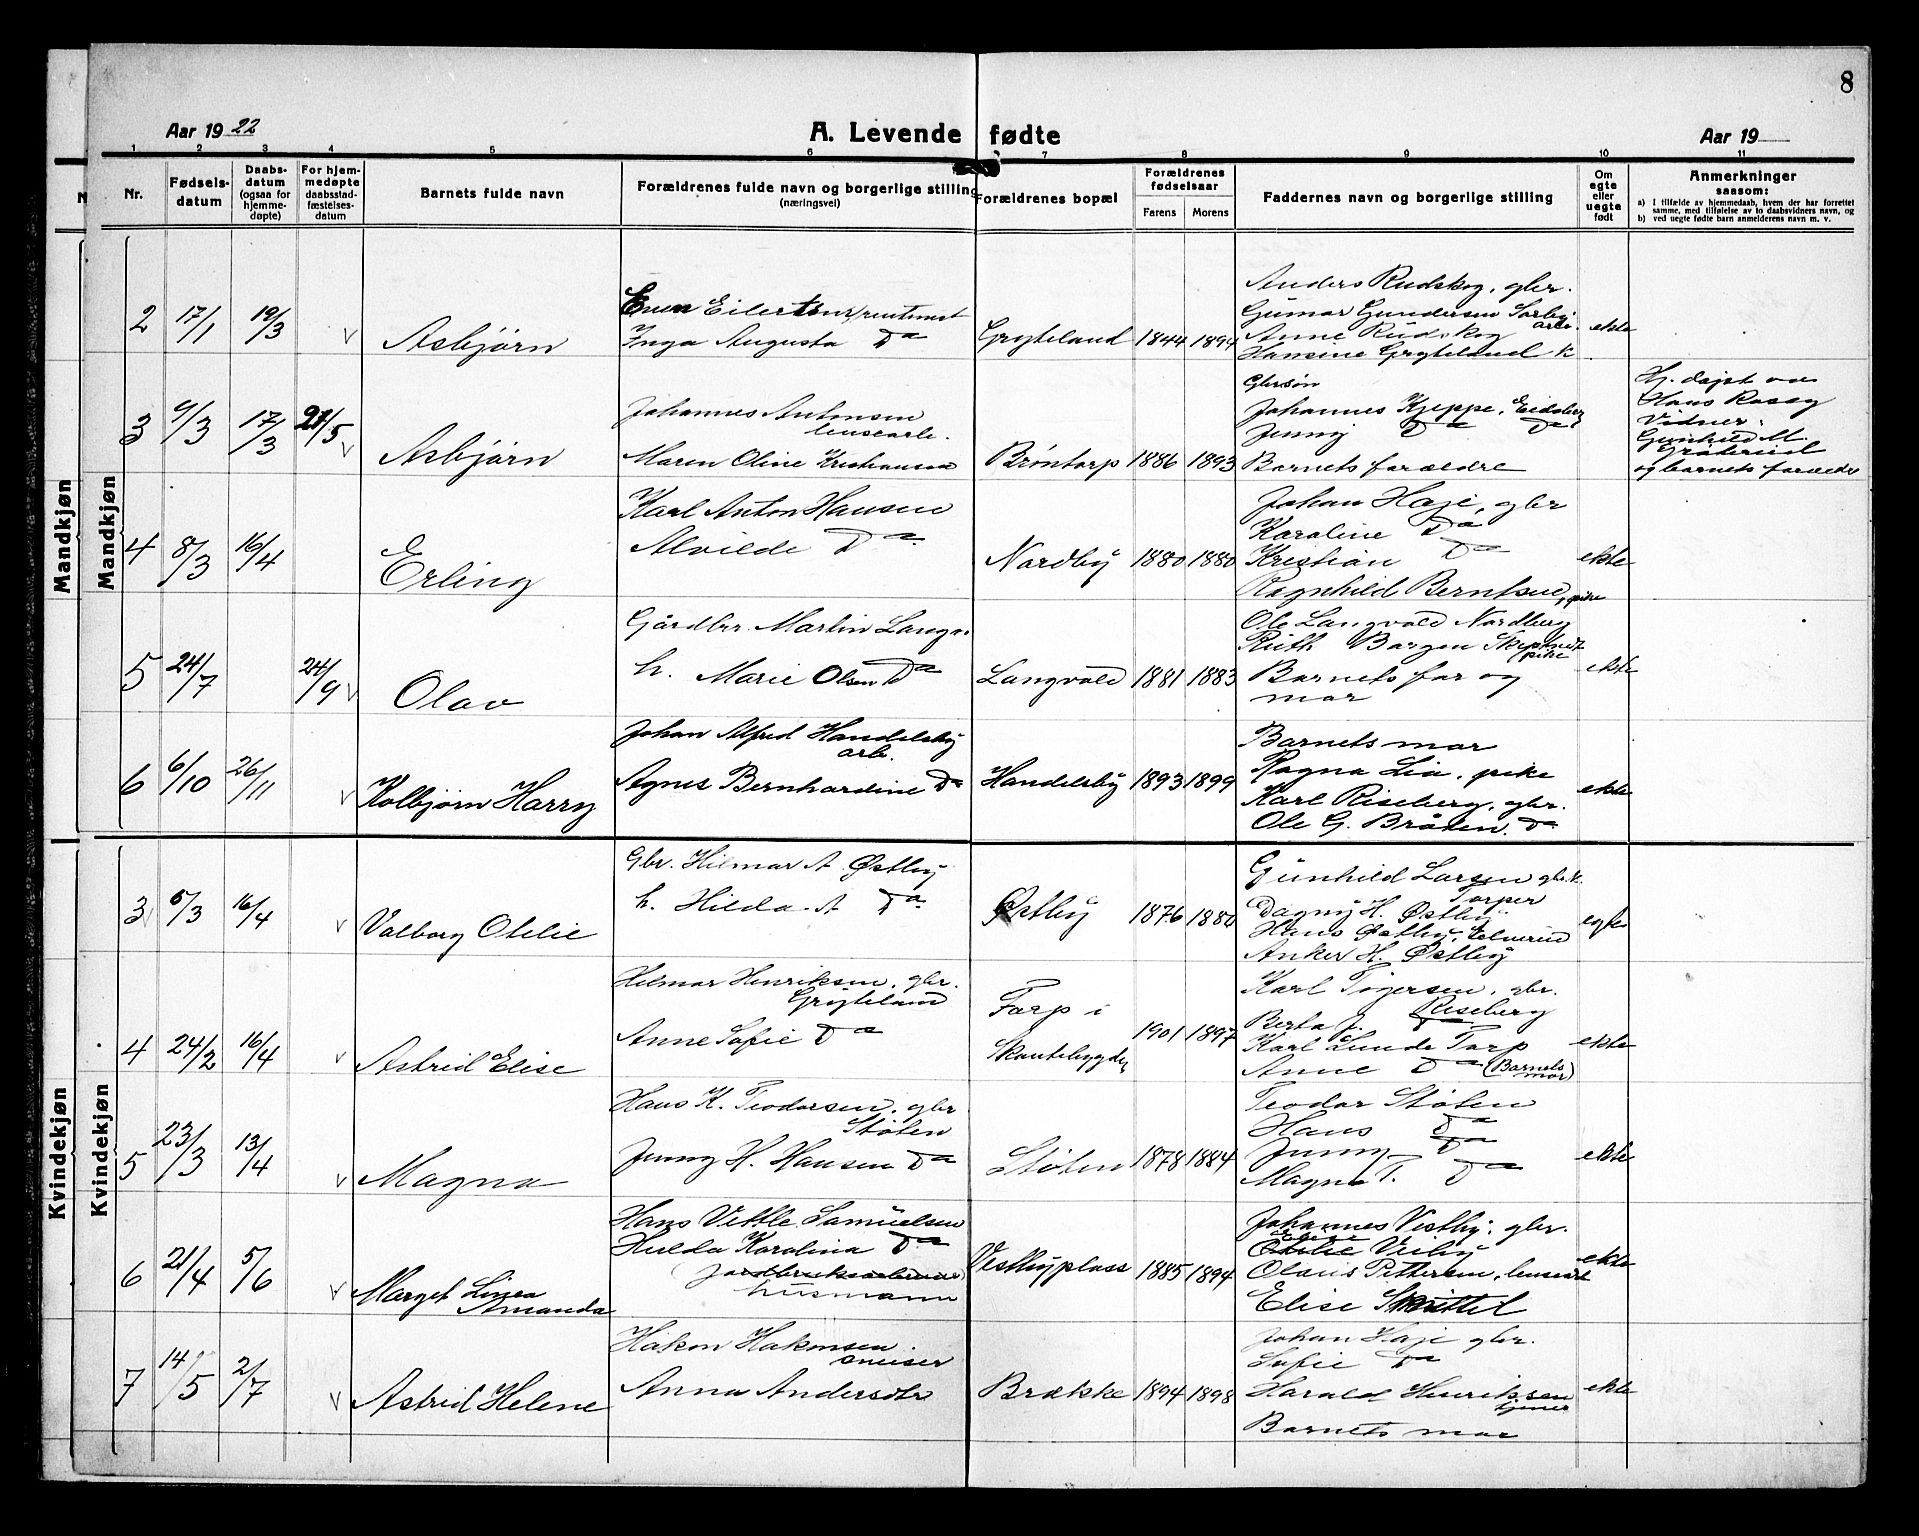 8
Aar 1922
A. Levende fødte
Aar 19
1 2 3 4 5 6 7 8 9 10 11
Nr.
Fødselsdatum
Daabsdatum (ogsaa for hjemmedøpte)
For hjemmedøpte daabsstadfæstelsesdatum
Barnets fulde navn
Forældrenes fulde navn og borgerlige stilling (næringsvei)
Forældrenes bopæl
Forældrenes fødselsaar
Farens Morens
Faddernes navn og borgerlige stilling
Om egte eller uegte født
Anmerkninger
saasom:
a) I tilfælde av hjemmedaab, hvem der har forrettet samme, med tilføielse av to daabsvidners navn, og
b) ved uegte fødte barn anmelderens navn m. v.
Mandkjøn
Mandkjøn
2 17/1 19/3 v Asbjørn
Even Eilertsen
Inga Augusta Da
Gryteland 1844 1894
Anders Rudskog, gbr.
Gunnar Gundersen
Anne Rudskog
Hansine Gryteland k
ekte
3 9/3 17/3 21/5 v Asbjørn
Johannes Antonsen
Maren Oline Kristiansen
Brøntorp 1886 1893
Gbrsøn
Johannes Kjeppe, Eidsberg
Jenny Da Da
Barnets forældre
Hj. døpt av
Hans
Vidner:
Gunhild M.
og barnets forældre
4 8/3 16/4 Erling
Karl Anton Hansen
Alvilde Da
Nordby 1880 1880
Johan Haje, gbr
Karoline Da
Kristian Da
Ragnhild Berntsen, pike
ekte
5 24/7 24/9 v Olav
Gårdbr. Martin Langv.
h. Marie Olsen Da
Langvold 1881 1883
Ole Langvold Nordberg
Ruth Bargen
pike
Barnets far og
mor
ekte
6 6/10 26/11 v Kolbjørn Harry
Johan Alfred Handelsby
arb.
Agnes Bernhardine Da
Handelsby 1893 1899
Barnets mor
Ragna Lia, pike
Karl Riseberg, gbr.
Ole G. Bråten. Da
ekte
Kvindekjøn
Kvindekjøn
3 5/3 16/4 v Valborg Otelie
Gbr. Hilmar A. Østby
h. Hilda A Da
Østby 1876 1880
Gunhild Larsen gbr.k.
Torper
Dagny H. Østby
Hans Østby,
Anker H. Østby
egte
4 24/2 16/4 v Astrid Elise
Hilmar Henriksen, gbr.
Gryteland
Anne Sofie Da
Torp i
Skautebygden
1901 1897
Karl Tøgersen, gbr.
Berta J. Riseberg
Karl Lunde Torp
Anne Da (Barnets
mor)
ekte
5 23/3 13/4 v Magna
Hans K. Teodorsen, gbr
Støten
Jenny H. Hansen Da
Støten 1878 1884
Teodor Støten
Hans Da
Jenny Da
Magna T. Da
ekte
6 21/4 5/6 v Marget Linea
Amanda
Hans Vettle Samuelsen
Hulda Karolina Da
husmann
Vestbyplass 1885 1894
Johannes Vestby, gbr.
Otelie Veiby
Olaus Pettersen,
Elise
ekte
7 14/5 2/7 v Astrid Helene
Håkon Hakonsen
Anna Andersdtr
Brække 1894 1898
Johan Haje gbr.
Sofie Da
Harald Henriksen
tjener
Barnets mor
ekte